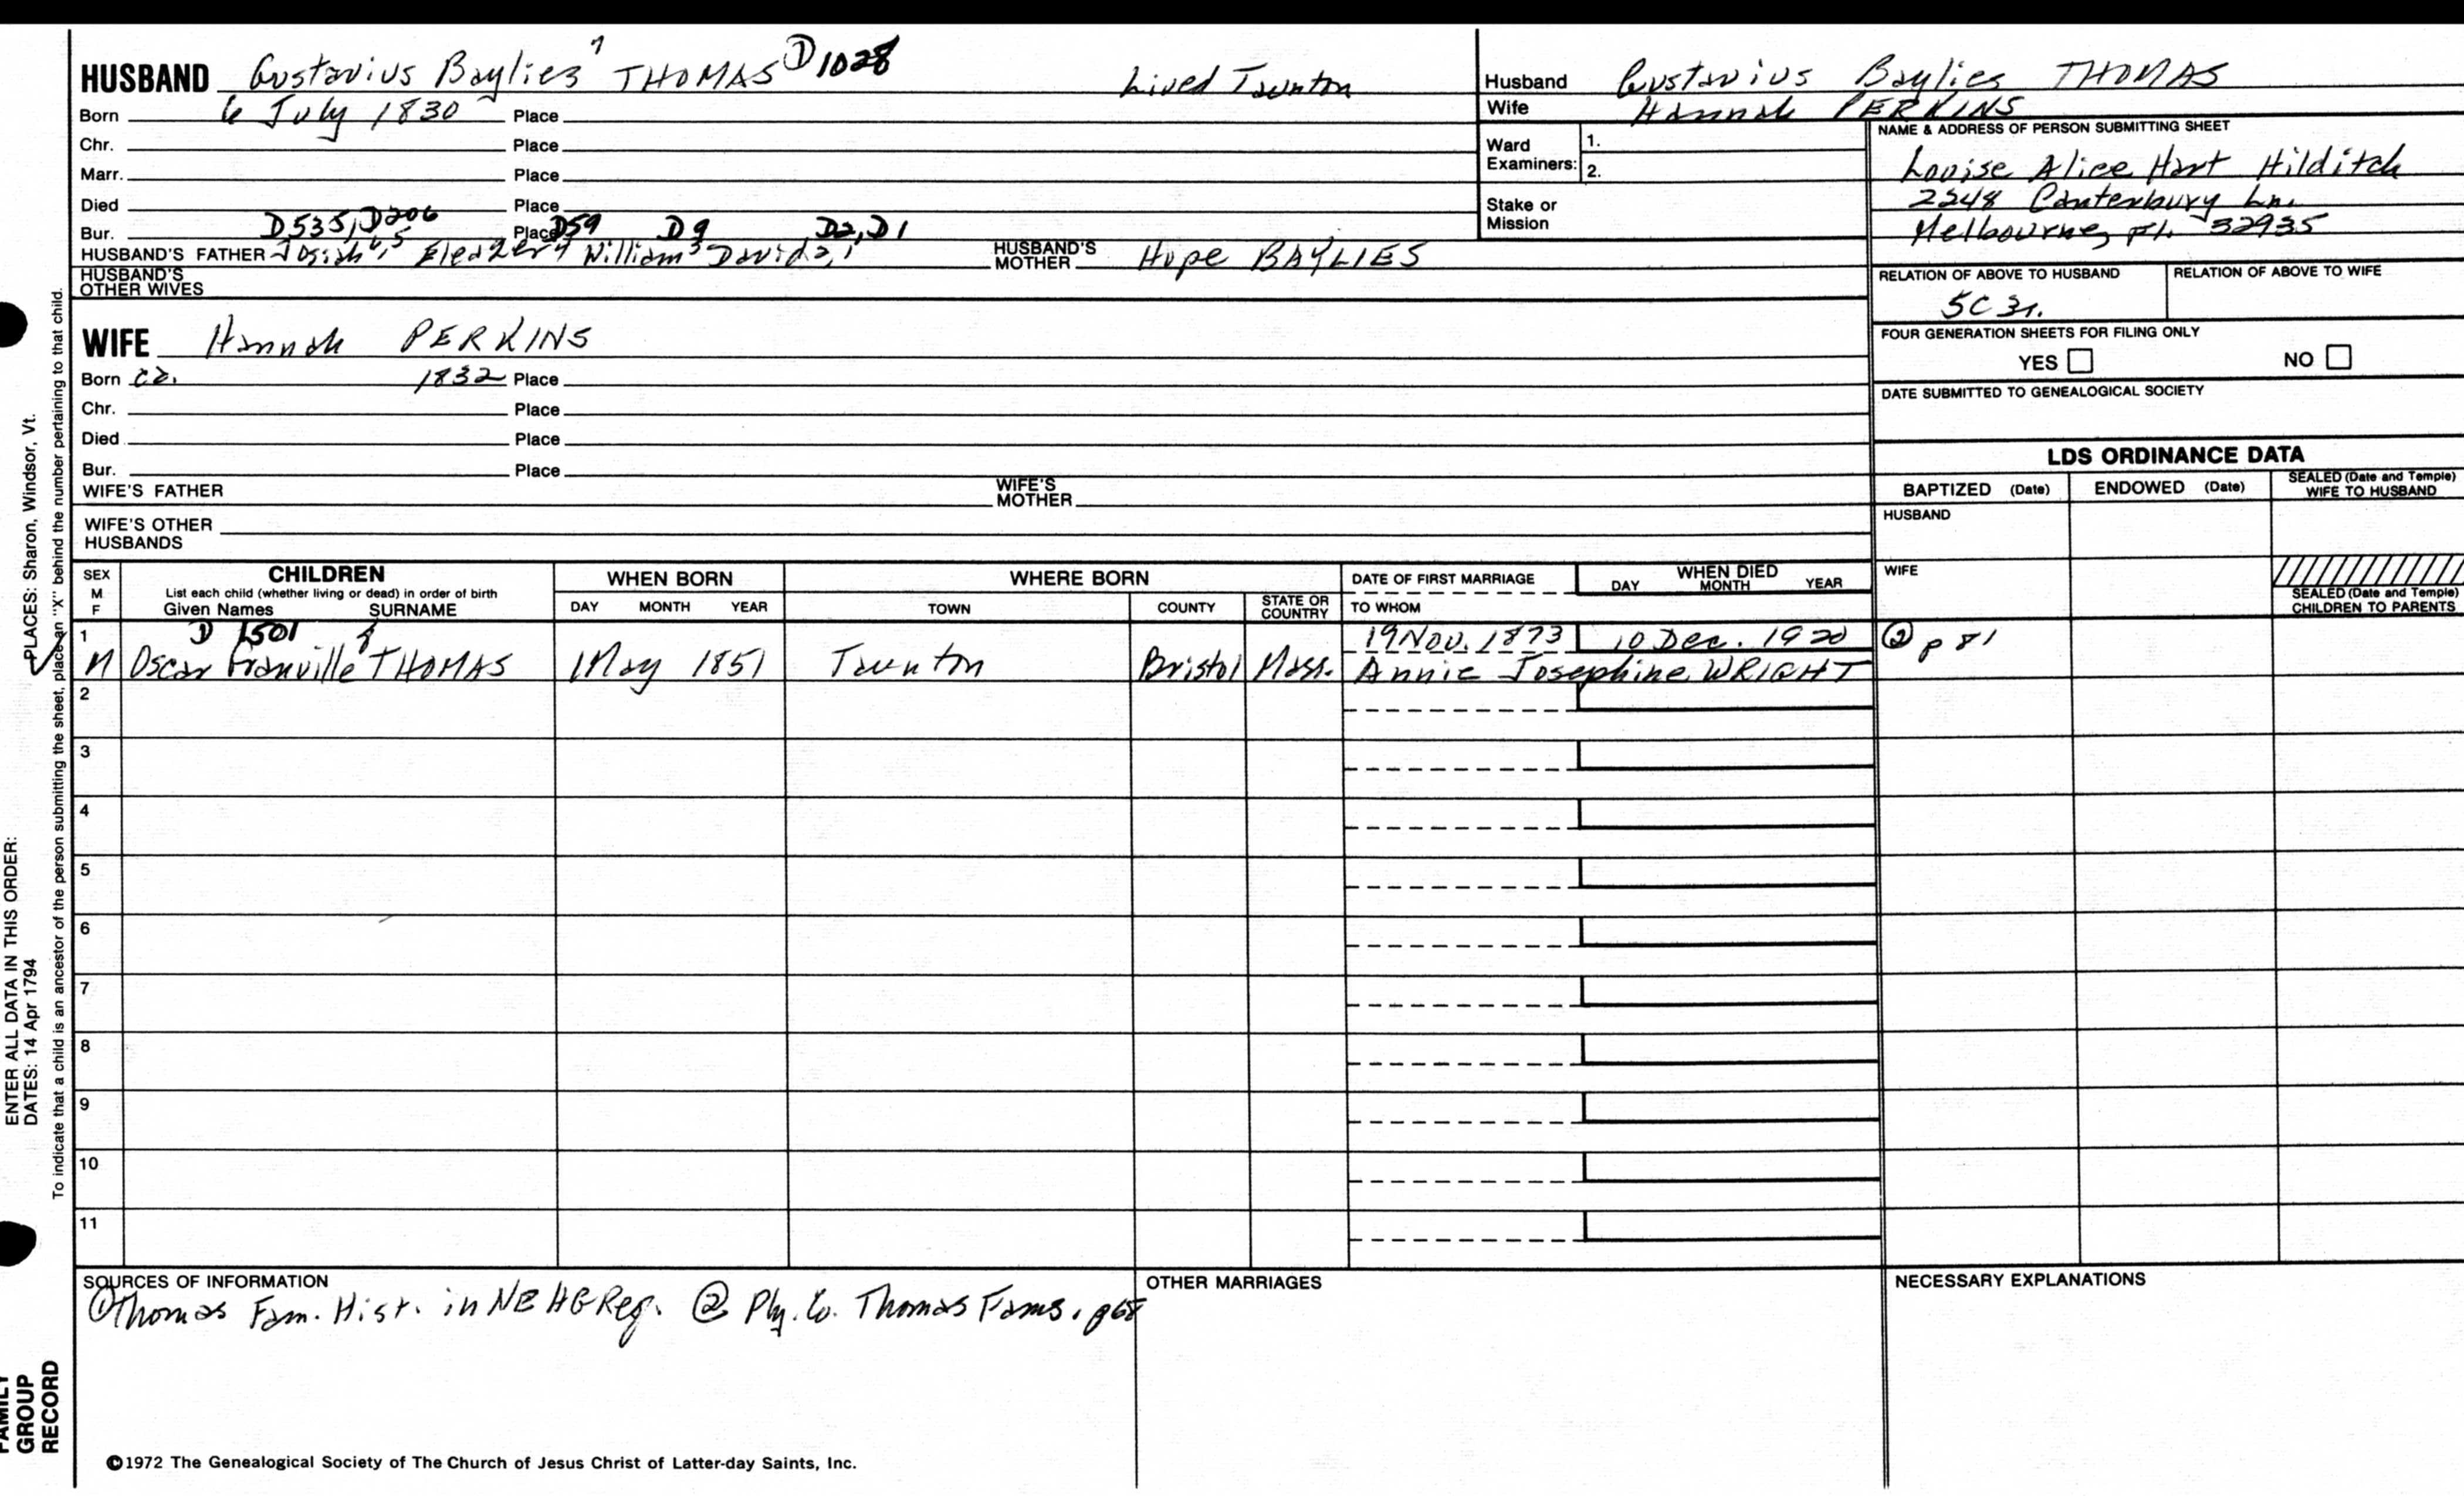 HUSBAND Gustavius Baylies 7 THOMAS D1028 Lived Taunton
Born 6 July 1830 Place
Chr. Place
Marr. Place
Died Place
D535, D206 D59 D9 D2, D1
Bur. Place
HUSBAND'S FATHER Josiah 6,5 Eleazer 4 William 3 David 2,1 HUSBAND'S MOTHER Hope BAYLIES
HUSBAND'S OTHER WIVES
WIFE Hannah PERKINS
Born ca. 1832 Place
Chr. Place
Died Place
Bur. Place
WIFE'S FATHER WIFE'S MOTHER
WIFE'S OTHER HUSBANDS
Husband Gustavius Baylies THOMAS
Wife Hannah PERKINS
Ward Examiners: 1.
2.
Stake or Mission
NAME & ADDRESS OF PERSON SUBMITTING SHEET
Louise Alice Hart Hilditch
2248 Canterbury Ln.
Melbourne, Fl. 32935
RELATION OF ABOVE TO HUSBAND RELATION OF ABOVE TO WIFE
5C 3r.
FOUR GENERATION SHEETS FOR FILING ONLY
YES NO
DATE SUBMITTED TO GENEALOGICAL SOCIETY
LDS ORDINANCE DATA
BAPTIZED (Date) ENDOWED (Date) SEALED (Date and Temple) WIFE TO HUSBAND
HUSBAND
WIFE
SEALED (Date and Temple) CHILDREN TO PARENTS
SEX M F
CHILDREN
List each child (whether living or dead) in order of birth
Given Names SURNAME
WHEN BORN
DAY MONTH YEAR
WHERE BORN
TOWN COUNTY STATE OR COUNTRY
DATE OF FIRST MARRIAGE
TO WHOM
WHEN DIED
DAY MONTH YEAR
1 D 1501 8 19 Nov. 1873 10 Dec. 1920 ② p 81
M Oscar Granville THOMAS 1 May 1851 Taunton Bristol Mass. Annie Josephine WRIGHT
2
3
4
5
6
7
8
9
10
11
SOURCES OF INFORMATION
① Thomas Fam. Hist. in NEHGReg. ② Ply. Co. Thomas Fams, p68
OTHER MARRIAGES
NECESSARY EXPLANATIONS
©1972 The Genealogical Society of The Church of Jesus Christ of Latter-day Saints, Inc.
ENTER ALL DATA IN THIS ORDER:
DATES: 14 Apr 1794 PLACES: Sharon, Windsor, Vt.
To indicate that a child is an ancestor of the person submitting the sheet, place an "X" behind the number pertaining to that child.
FAMILY
GROUP
RECORD